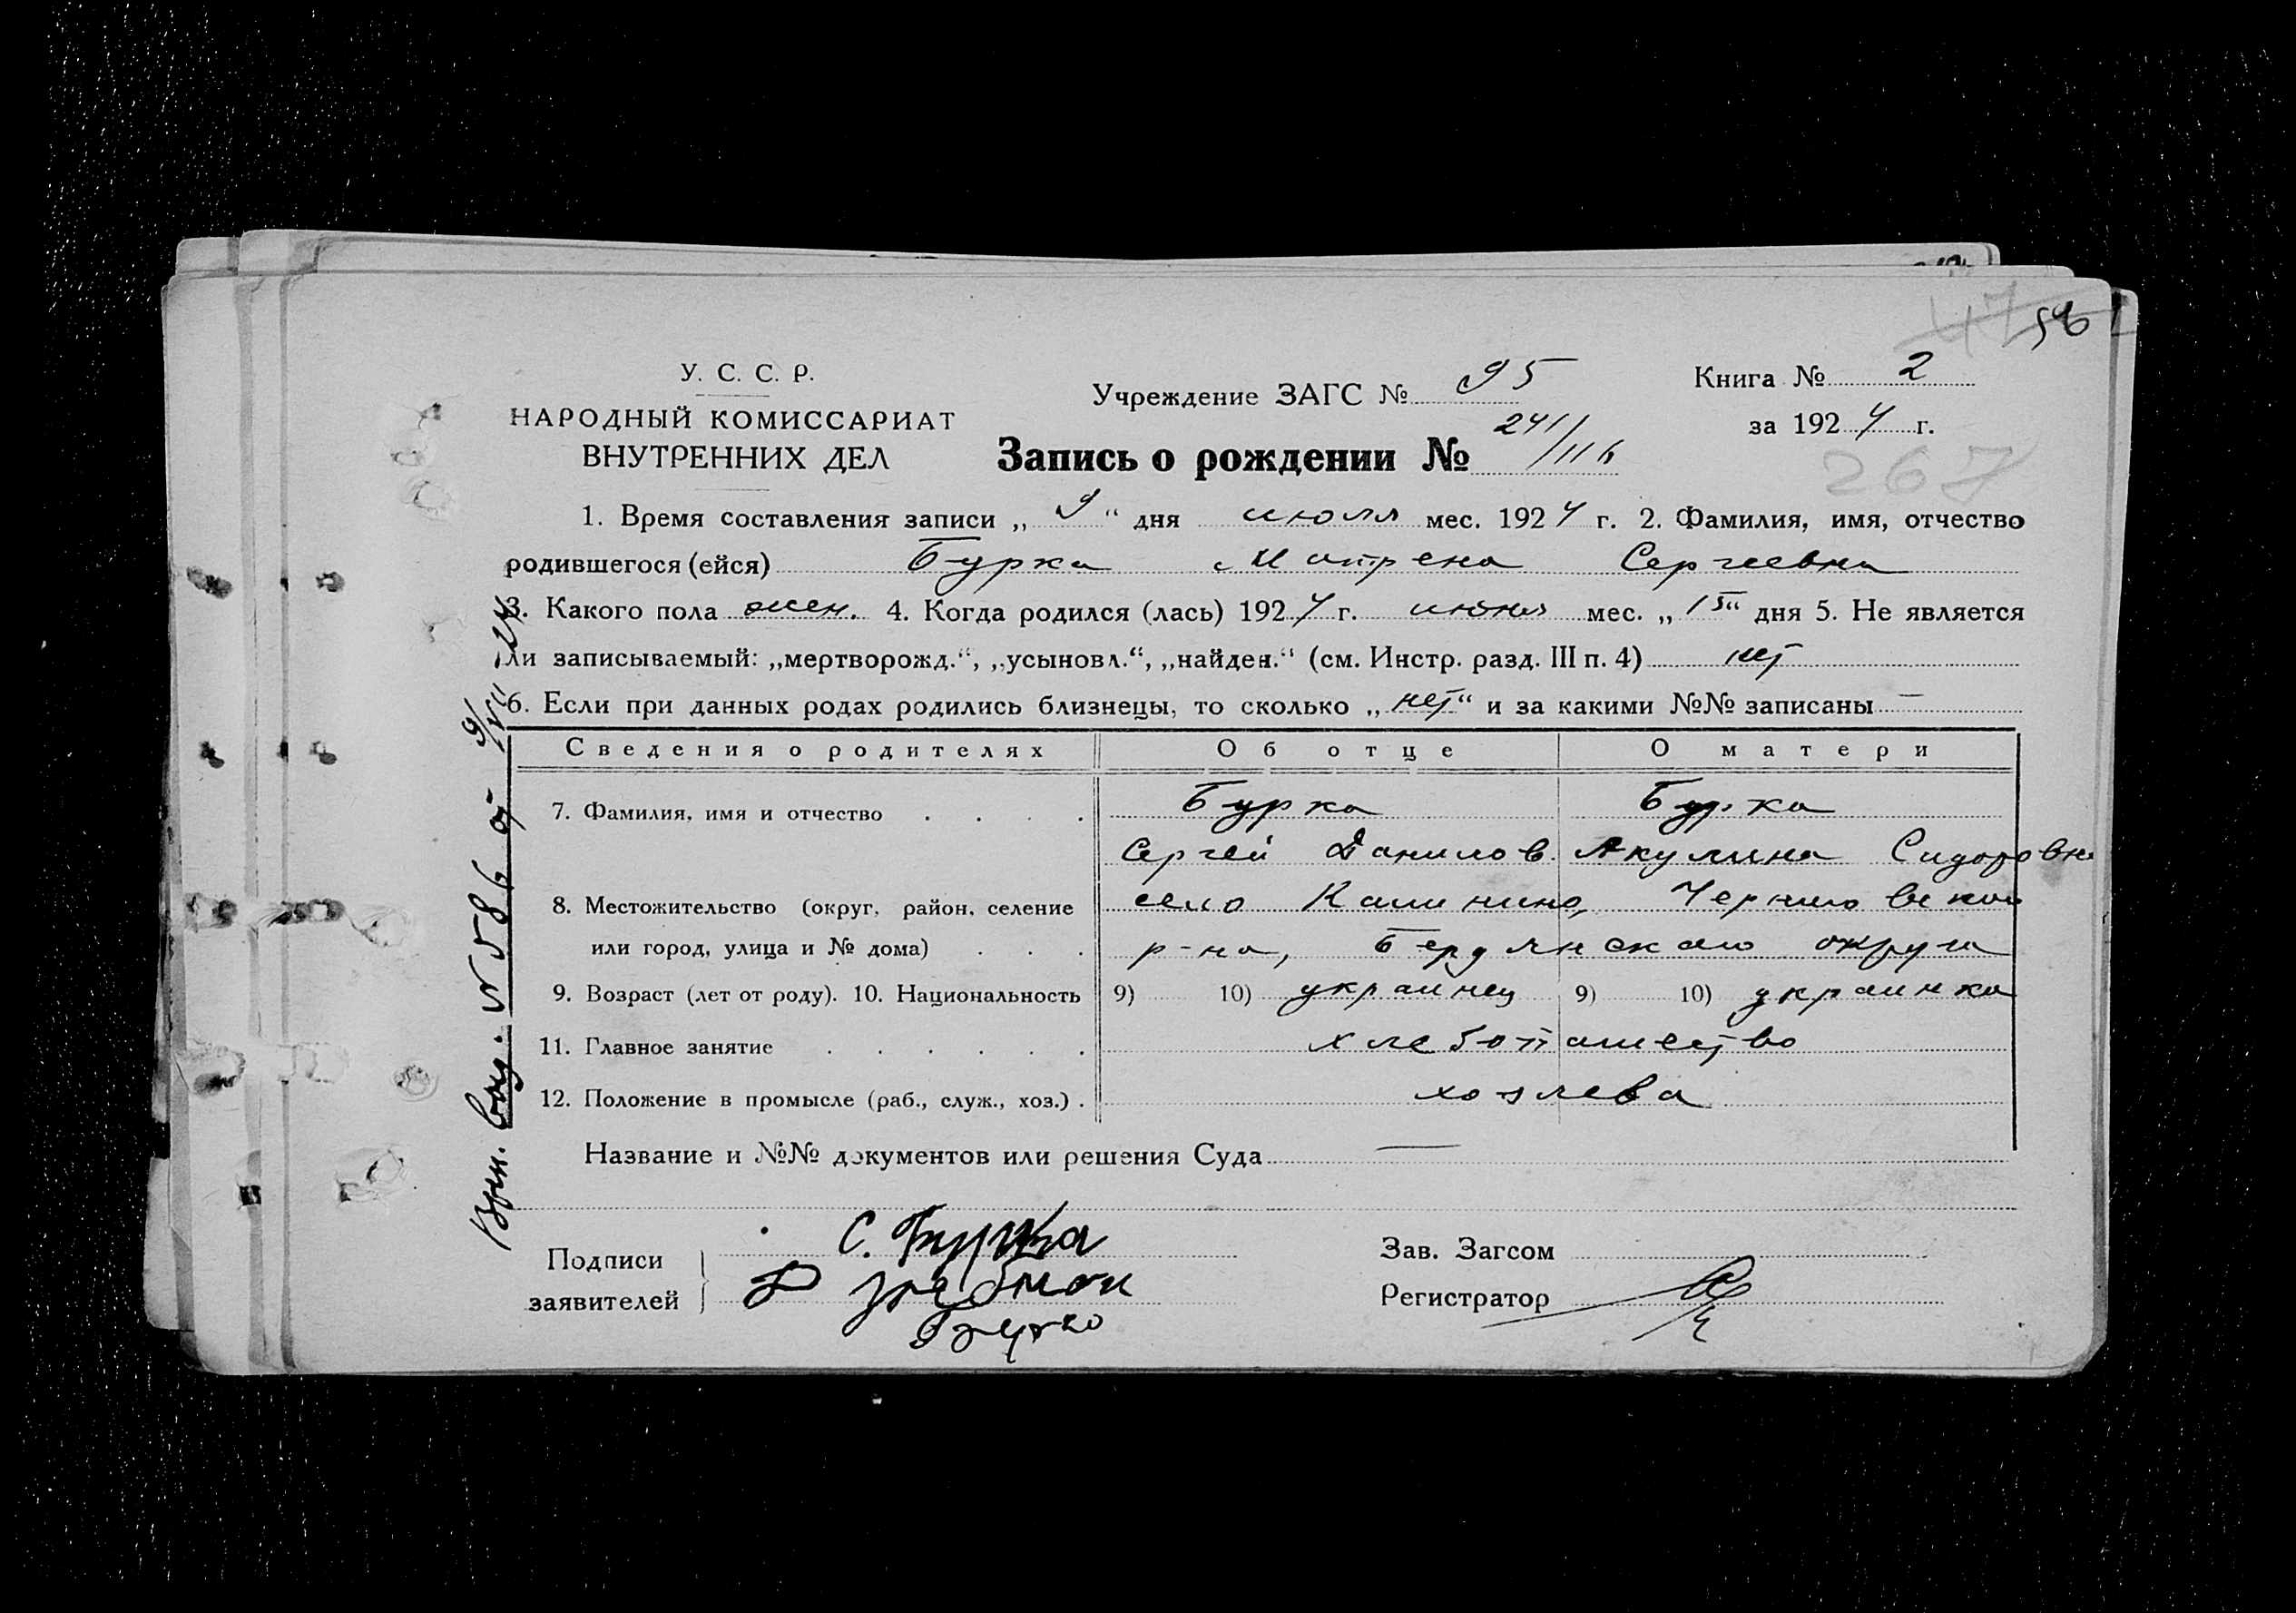 47 56
У. С. С. Р.
НАРОДНЫЙ КОМИССАРИАТ
ВНУТРЕННИХ ДЕЛ
Учреждение ЗАГС № 95
Книга № 2
за 1924 г.
Запись о рождении № 241/116
267
1. Время составления записи „ 9 “ дня июля мес. 1924 г. 2. Фамилия, имя, отчество
родившегося (ейся) Бурка Матрена Сергеевна
3. Какого пола жен. 4. Когда родился (лась) 1924 г. июня мес. „ 15 “ дня 5. Не является
ли записываемый: „мертворожд.“, „усыновл.“, „найден.“ (см. Инстр. разд. III п. 4) нет
6. Если при данных родах родились близнецы, то сколько „ нет “ и за какими №№ записаны —
Сведения о родителях Об отце О матери
7. Фамилия, имя и отчество . . . . Бурка Бурка
Сергей Данилов. Акулина Сидоровна
8. Местожительство (округ, район, селение село Калинино, Черниговского
или город, улица и № дома) . . . р-на, Бердянского округа
9. Возраст (лет от роду). 10. Национальность 9) 10) украинец 9) 10) украинка
11. Главное занятие . . . . . . хлебопашество
12. Положение в промысле (раб., служ., хоз.) . хозяева
Название и №№ документов или решения Суда —
Подписи
заявителей
С. Бурка
Зав. Загсом
Регистратор
№ 586 от 9/VII 24